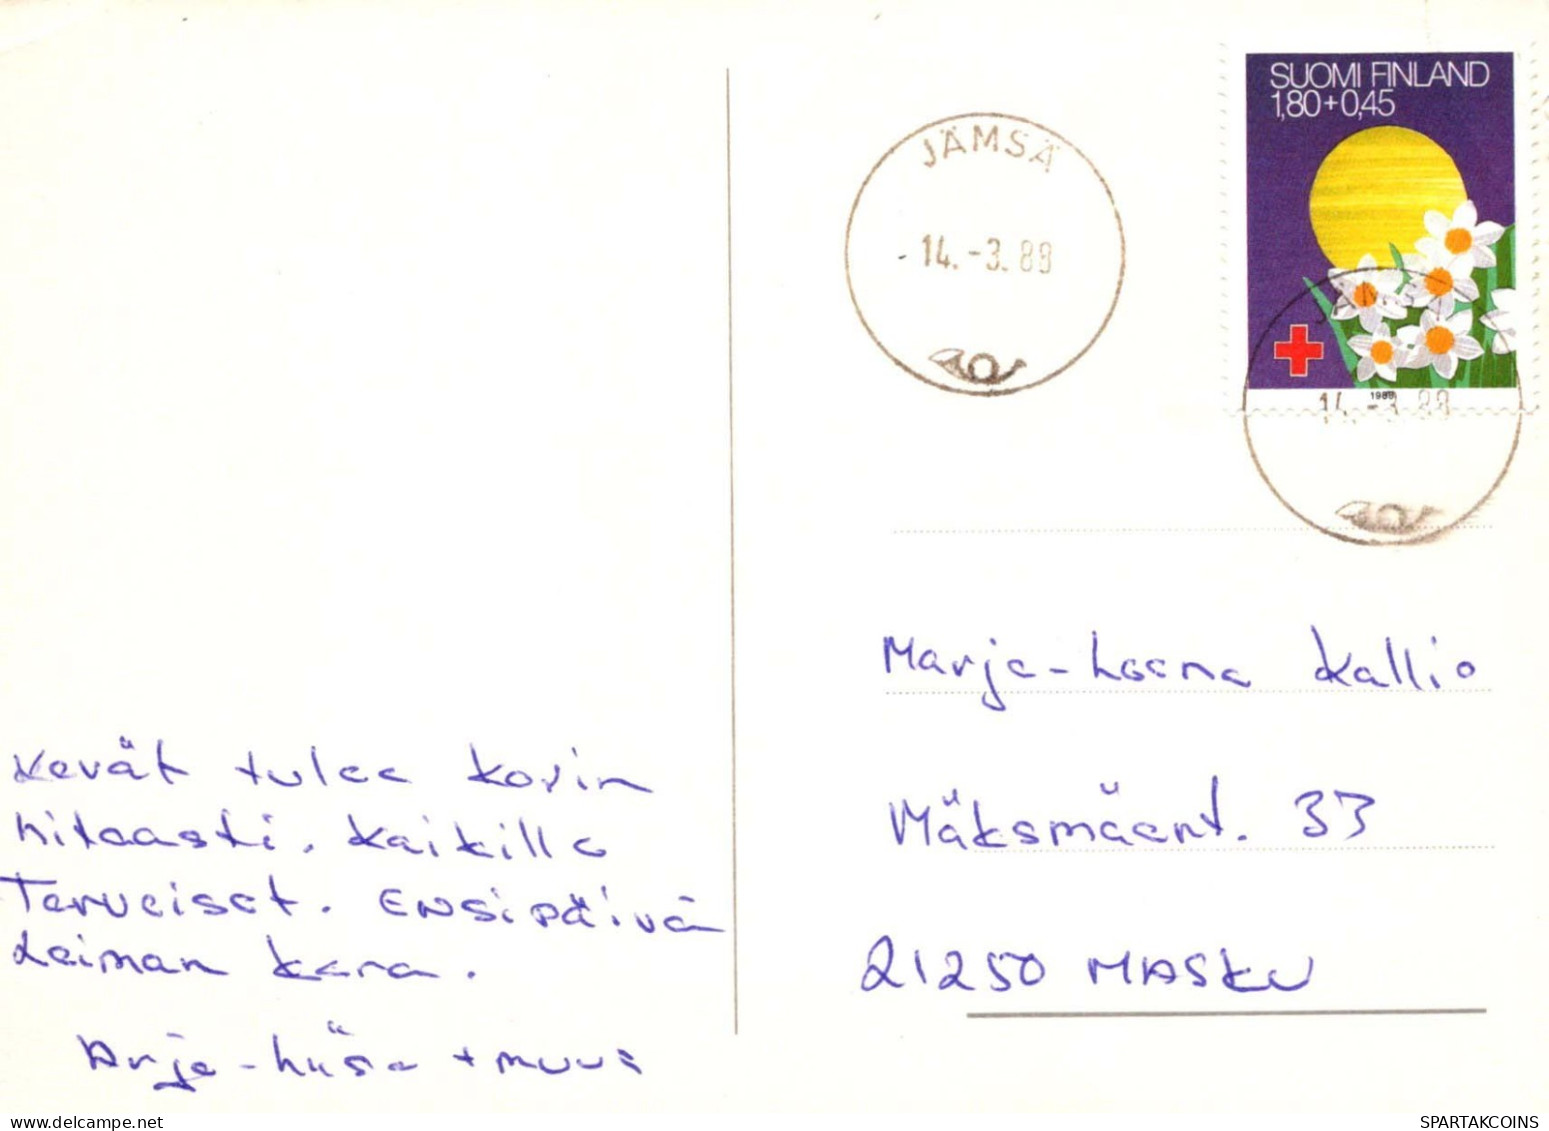 SUOMI FINLAND
1,80+0,45
JÄMSÄ
14.-3.88
JÄMSÄ
14.-3.88
1988
Marja-Leena Kallio
Mäksmäent. 33
21250 MASKU
Kevät tulee kovin
hitaasti. Kaikille
Terveiset. ENSipäivä
Leiman kera.
Arja-Liisa + muut
SPARTAKCOINS